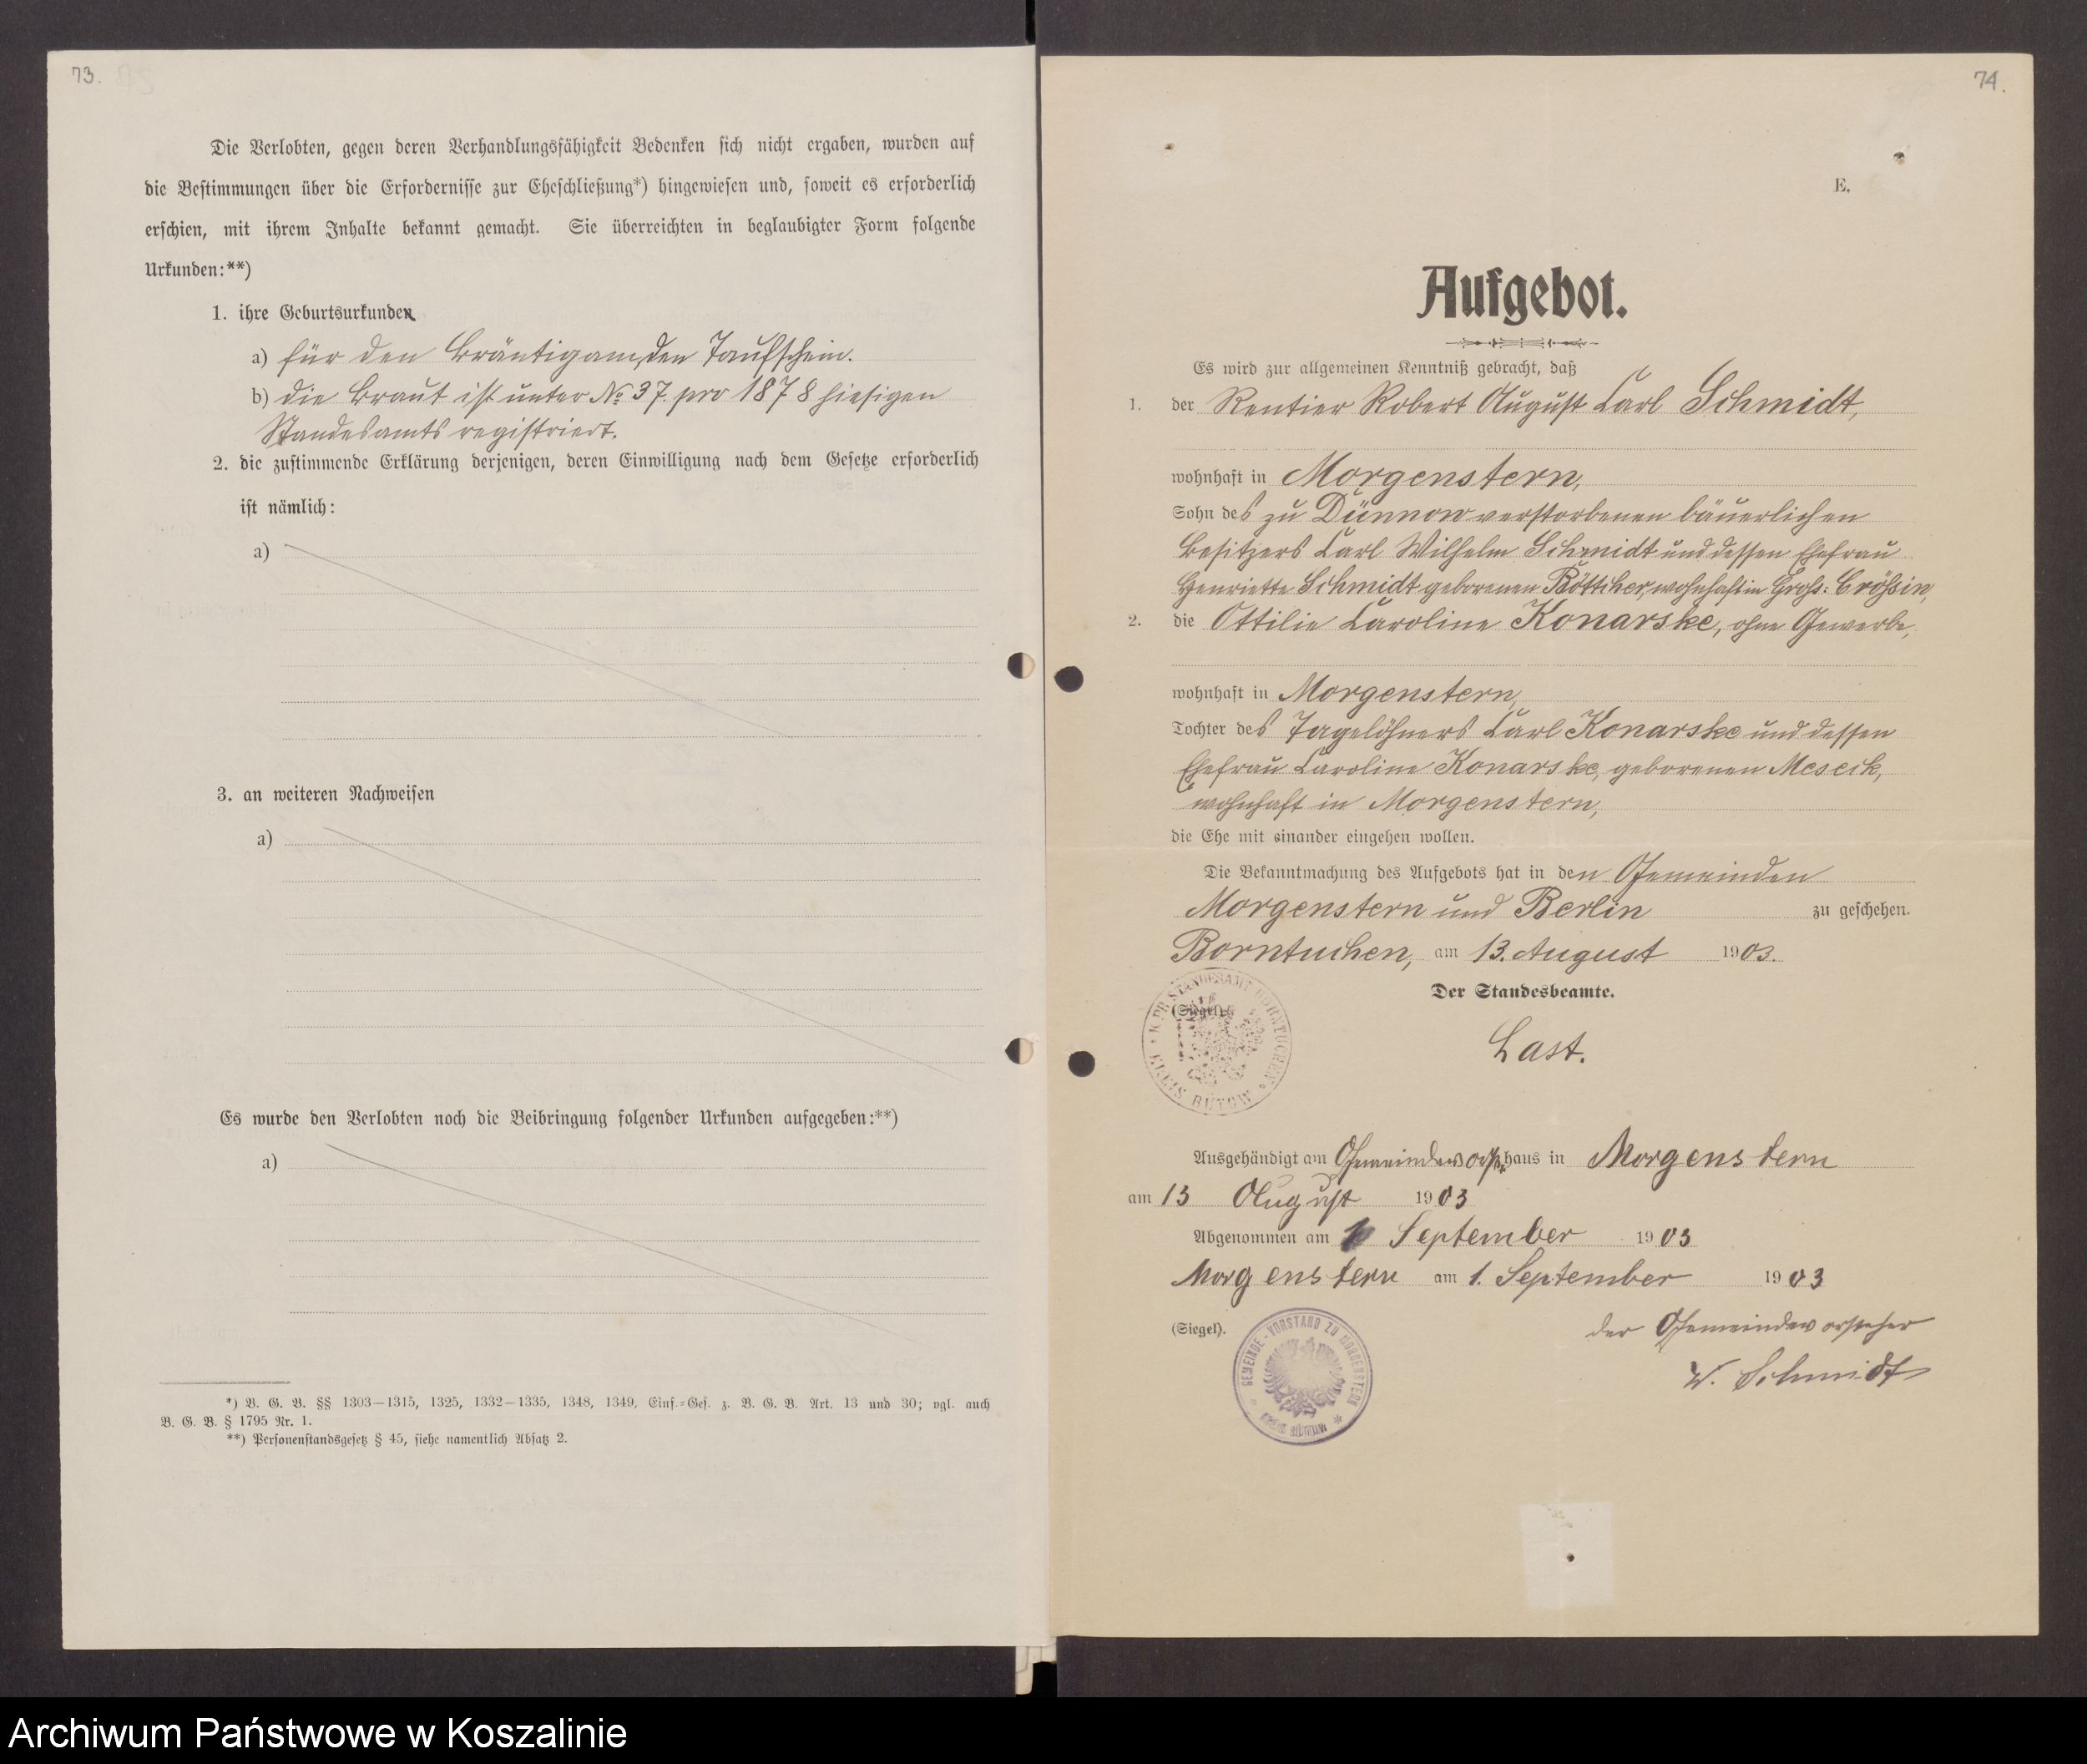 73.
Die Verlobten, gegen deren Verhandlungsfähigkeit Bedenken sich nicht ergaben, wurden auf
die Bestimmungen über die Erfordernisse zur Eheschließung*) hingewiesen und, soweit es erforderlich
erschien, mit ihrem Inhalte bekannt gemacht. Sie überreichten in beglaubigter Form folgende
Urkunden:**)
1. ihre Geburtsurkunden
a) für den Bräutigam, den Taufschein.
b) die Braut ist unter No 37. pro 1878 hiesigen
Standesamts registriert.
2. die zustimmende Erklärung derjenigen, deren Einwilligung nach dem Gesetze erforderlich
ist nämlich:
a)
3. an weiteren Nachweisen
a)
Es wurde den Verlobten noch die Beibringung folgender Urkunden aufgegeben:**)
a)
*) B. G. B. §§ 1303–1315, 1325, 1332–1335, 1348, 1349, Einf.-Ges. z. B. G. B. Art. 13 und 30; vgl. auch
B. G. B. § 1795 Nr. 1.
**) Personenstandsgesetz § 45, siehe namentlich Absatz 2.
74.
E.
Aufgebot.
Es wird zur allgemeinen Kenntniß gebracht, daß
1. der Rentier Robert August Carl Schmidt,
wohnhaft in Morgenstern,
Sohn des zu Dünnow verstorbenen bäuerlichen
Besitzers Carl Wilhelm Schmidt und dessen Ehefrau
Henriette Schmidt geborenen Böttcher, wohnhaft in Groß: Crößin,
2. die Ottilie Caroline Konarske, ohne Gewerbe,
wohnhaft in Morgenstern,
Tochter des Tagelöhners Carl Konarske und dessen
Ehefrau Caroline Konarske, geborenen Meseck,
wohnhaft in Morgenstern,
die Ehe mit einander eingehen wollen.
Die Bekanntmachung des Aufgebots hat in den Gemeinden
Morgenstern und Berlin zu geschehen.
Borntuchen, am 13. August 1903.
Der Standesbeamte.
(Siegel).
K. PR. STANDESAMT BORNTUCHEN
KREIS BÜTOW
Last.
Ausgehängt am Gemeindevorst. haus in Morgenstern
am 13 August 1903
Abgenommen am 1 September 1903
Morgenstern am 1. September 1903
(Siegel).
GEMEINDE-VORSTAND ZU MORGENSTERN
KREIS BÜTOW
der Gemeindevorsteher
W. Schmidt
Archiwum Państwowe w Koszalinie